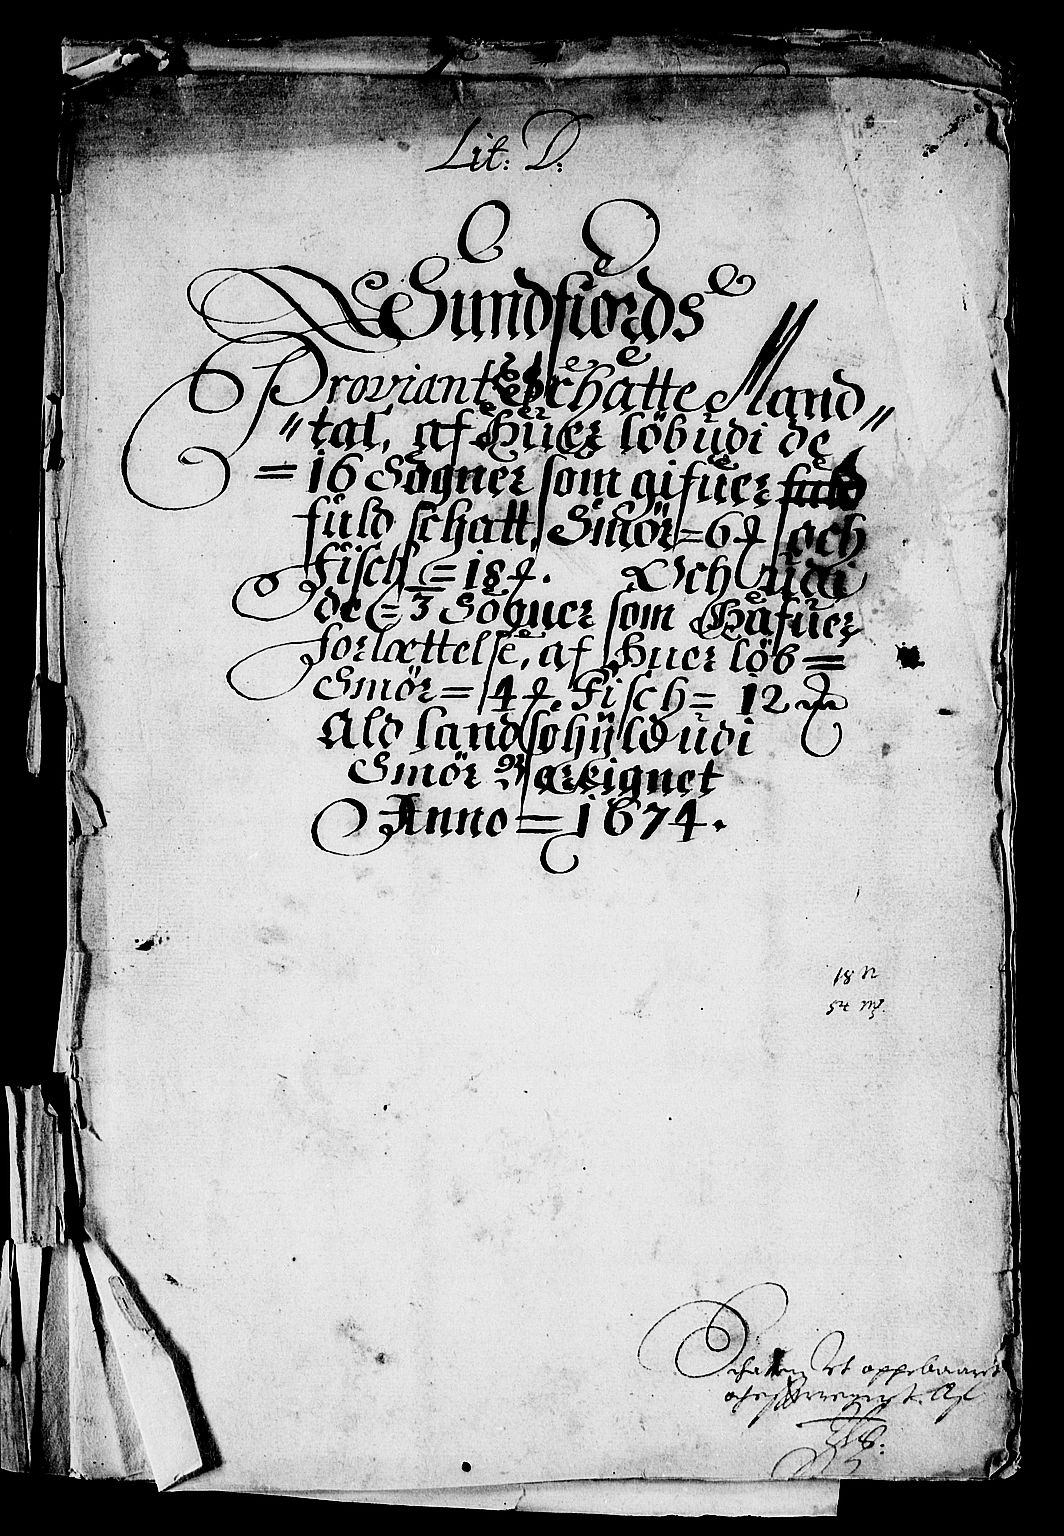 Lit: D:
Sundfiords
Proviant Schatte Mand
"tal, af Huer löb udi de
= 16 Sogner som gifuer fuld
fuld schatt, Smör = 6 ℔ och
Fisch = 18 ℔. Och udi
de = 3 Sogner som Hafuer
forlættelse, af huer löb =
Smör = 4 ℔, Fisch = 12 ℔
Ald landschyld udi
Smör bereignet
Anno = 1674.
18
54
Schatten oppebaaret